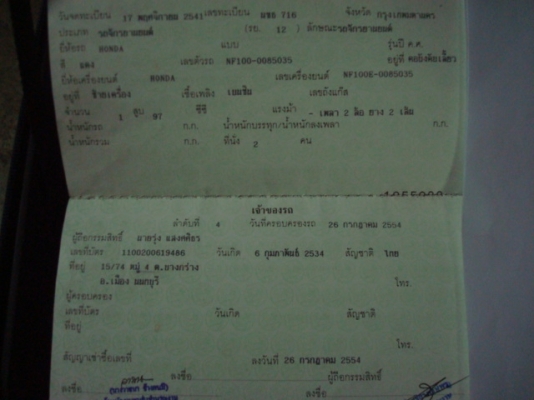 วันจดทะเบียน 17 พฤศจิกายน 2541 เลขทะเบียน 716 จังหวัด กรุงเทพมหานคร
ประเภท รถจักรยานยนต์ (รย. 12 ) ลักษณะรถจักรยานยนต์
ยี่ห้อรถ HONDA แบบ รุ่นปี ค.ศ.
สี แดง เลขตัวรถ NF100-0085035 อยู่ที่ คอยึดคันเลี้ยว
ยี่ห้อเครื่องยนต์ HONDA เลขเครื่องยนต์ NF100E-0085035
อยู่ที่ ซ้ายเครื่อง เชื้อเพลิง เบนซิน เลขถังแก๊ส
จำนวน 1 สูบ 97 ซีซี แรงม้า - เพลา 2 ล้อ ยาง 2 เส้น
น้ำหนักรถ ก.ก. น้ำหนักบรรทุก/น้ำหนักลงเพลา ก.ก.
น้ำหนักรวม ก.ก. ที่นั่ง 2 คน
เจ้าของรถ
ลำดับที่ 4 วันที่ครอบครองรถ 26 กรกฎาคม 2554
ผู้ถือกรรมสิทธิ์ สายรุ้ง
เลขที่บัตร 1100200619486 วันเกิด 6 กุมภาพันธ์ 2534 สัญชาติ ไทย
ที่อยู่ 15/74 หมู่ 4 ต.บางกร่าง
อ.เมือง นนทบุรี โทร.
ผู้ครอบครอง
เลขที่บัตร วันเกิด สัญชาติ
ที่อยู่
โทร.
สัญญาเช่าซื้อเลขที่ ลงวันที่ 26 กรกฎาคม 2554
ลงชื่อ ผู้ถือกรรมสิทธิ์
ลงชื่อ ลงชื่อ